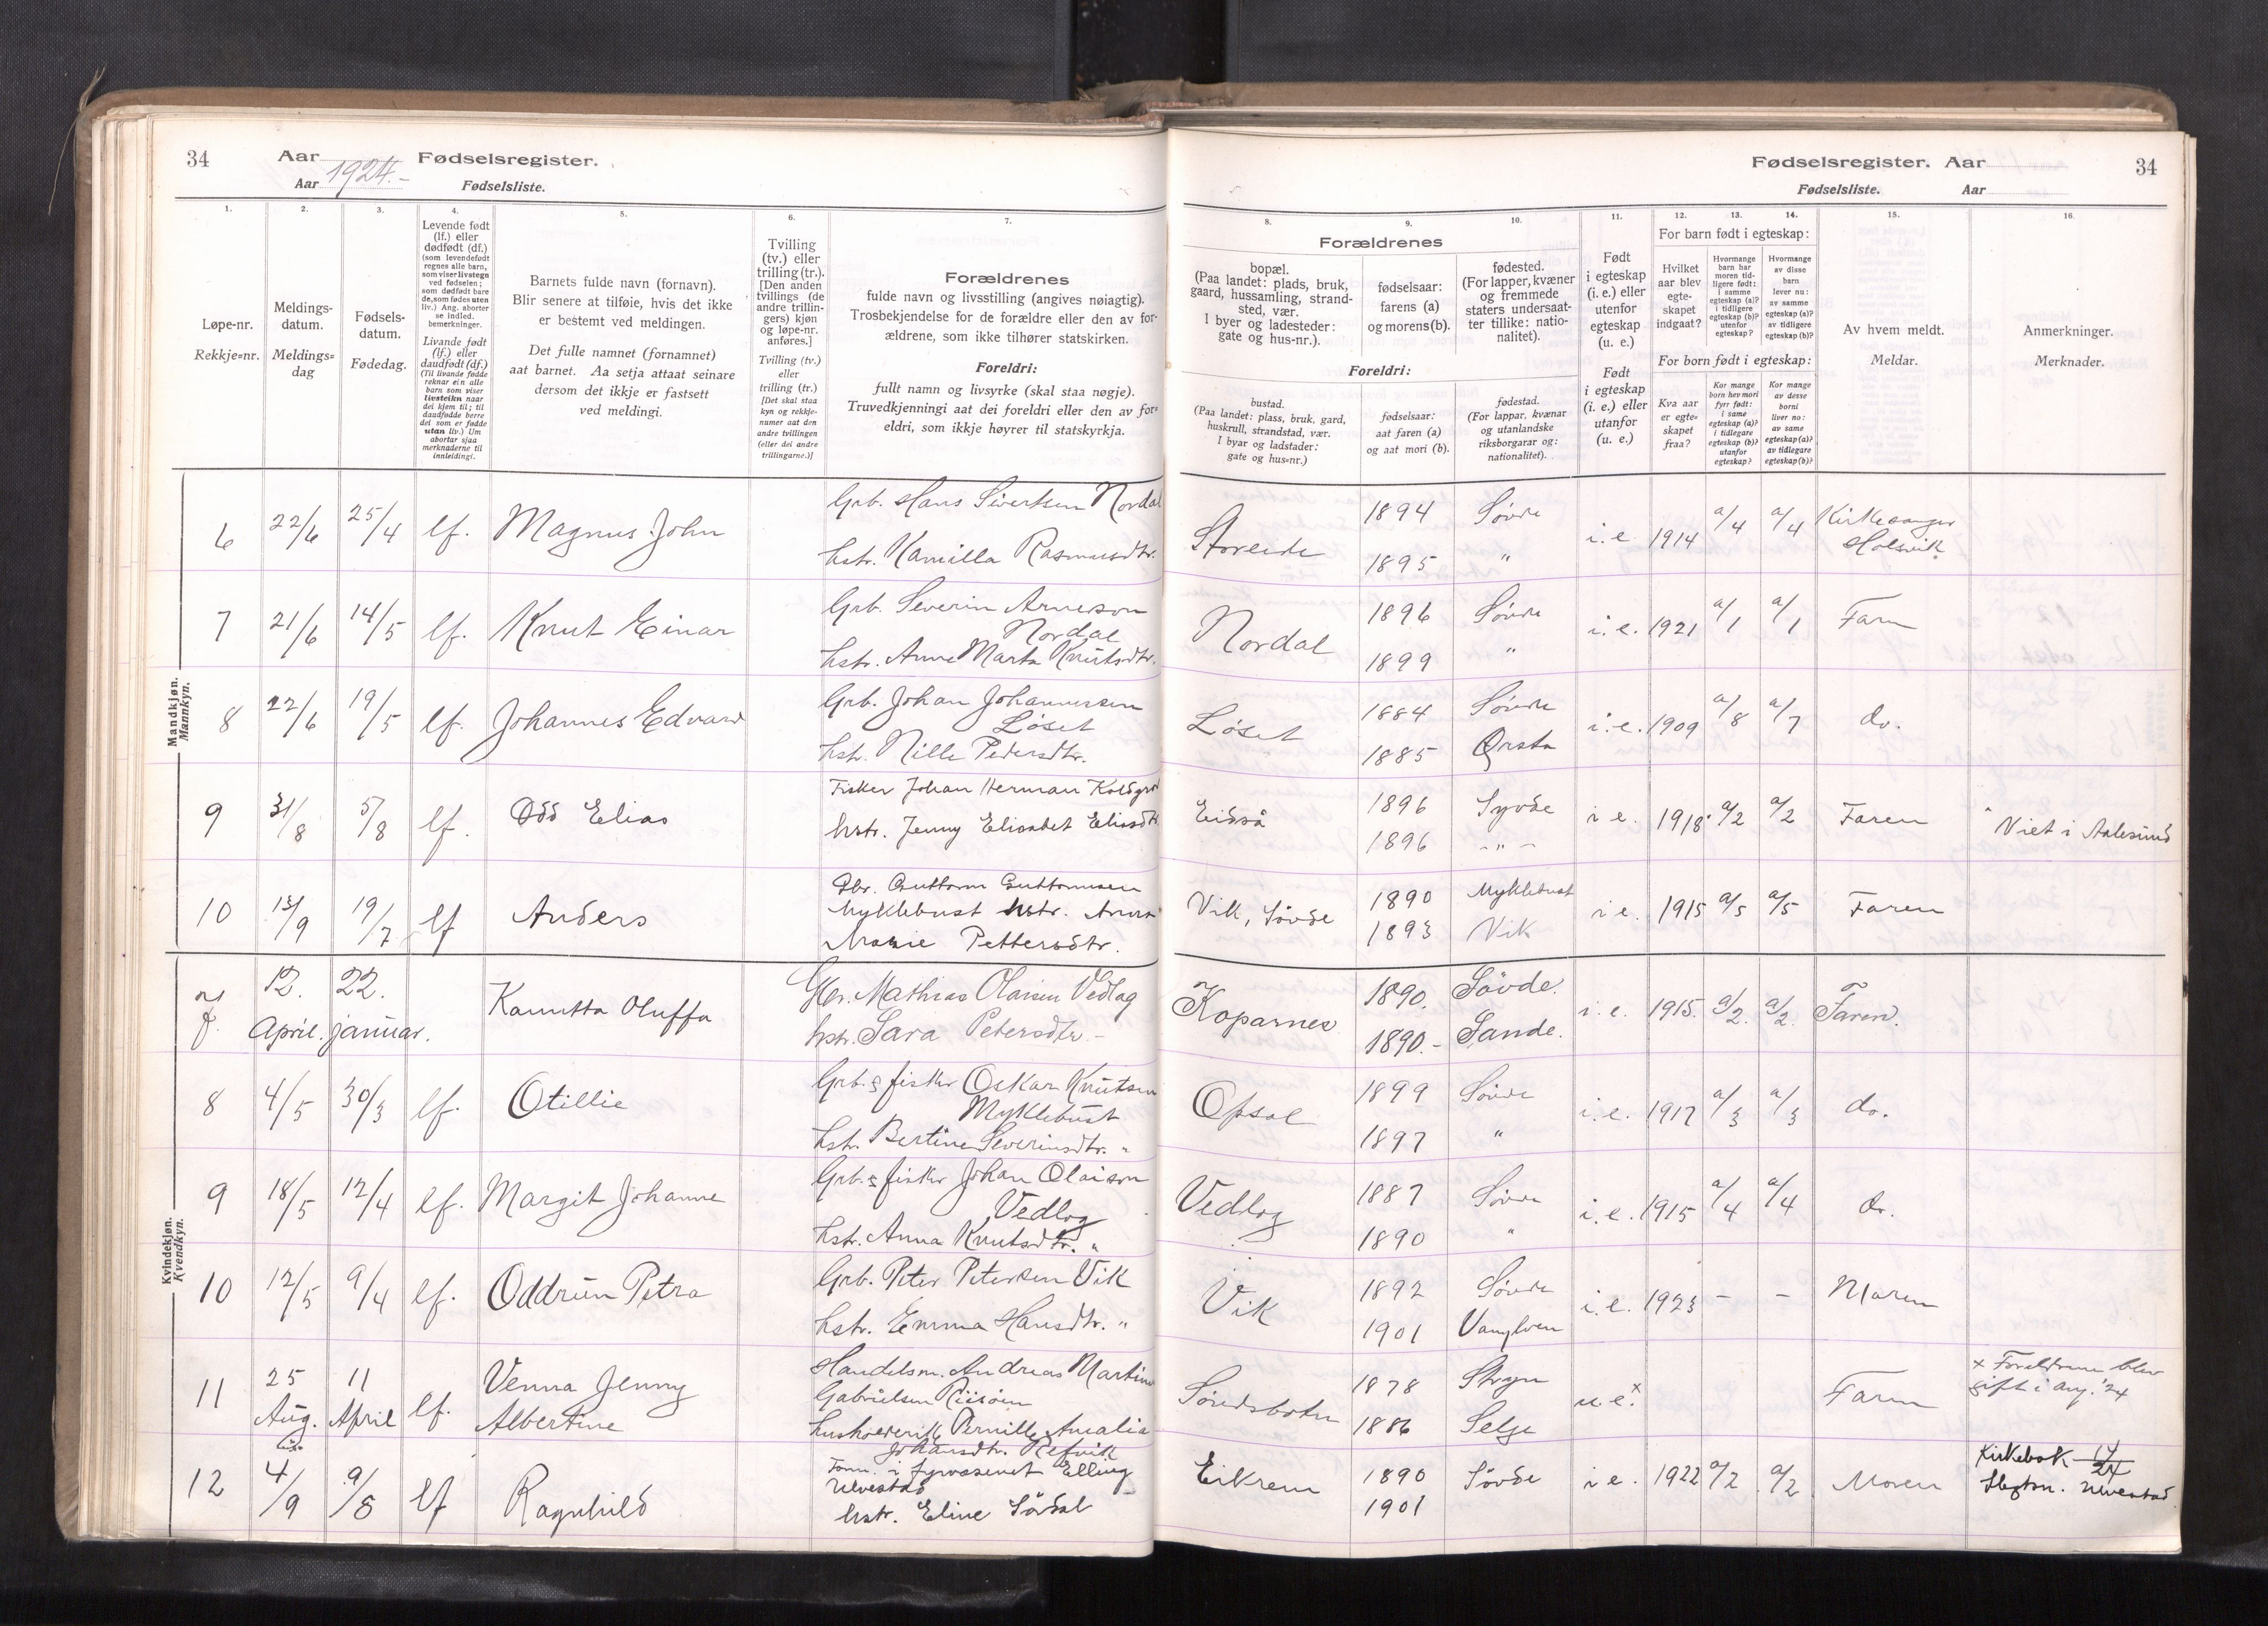 34 Aar 1924.- Fødselsregister.
Aar Fødselsliste.
Fødselsregister. Aar 34
Fødselsliste. Aar
1. 2. 3. 4. 5. 6. 7. 8. 9. 10. 11. 12. 13. 14. 15. 16.
Løpe-nr.
Rekkje=nr.
Meldings-
datum.
Meldings=
dag
Fødsels-
datum.
Fødedag.
Levende født
(lf.) eller
dødfødt (df.)
(som levendefødt
regnes alle barn,
som viser livstegn
ved fødselen;
som dødfødt bare
de, som fødes uten
liv.) Ang. aborter
se indled.
bemerkninger.
Livande født
(lf.) eller
daudfødt (df.)
(Til livande fødde
reknar ein alle
barn som viser
livsteikn naar
dei kjem til; til
daudfødde berre
dei som er fødde
utan liv.) Um
abortar sjaa
merknaderne til
innleidingi.
Barnets fulde navn (fornavn).
Blir senere at tilføie, hvis det ikke
er bestemt ved meldingen.
Det fulle namnet (fornamnet)
aat barnet. Aa setja attaat seinare
dersom det ikkje er fastsett
ved meldingi.
Tvilling
(tv.) eller
trilling (tr.).
[Den anden
tvillings (de
andre trillin-
gers) kjøn
og løpe-nr.
anføres.]
Tvilling (tv.)
eller
trilling (tr.)
[Det skal staa
kyn og rekkje-
numer aat den
andre tvillingen
(eller dei andre
trillingarne.)]
Forældrenes
fulde navn og livsstilling (angives nøiagtig).
Trosbekjendelse for de forældre eller den av for-
ældrene, som ikke tilhører statskirken.
Foreldri:
fullt namn og livsyrke (skal staa nøgje).
Truvedkjenningi aat dei foreldri eller den av for=
eldri, som ikkje høyrer til statskyrkja.
Forældrenes
bopæl.
(Paa landet: plads, bruk,
gaard, hussamling, strand-
sted, vær.
I byer og ladesteder:
gate og hus-nr.).
fødselsaar:
farens (a)
og morens (b).
fødested.
(For lapper, kvæner
og fremmede
staters undersaat-
ter tillike: natio-
nalitet).
Foreldri:
bustad.
(Paa landet: plass, bruk, gard,
huskrull, strandstad, vær.
I byar og ladstader:
gate og hus=nr.)
fødselsaar:
aat faren (a)
og aat mori (b).
fødestad.
(For lappar, kvænar
og utanlandske
riksborgarar og:
nationalitet).
Født
i egteskap
(i. e.) eller
utenfor
egteskap
(u. e.)
Født
i egteskap
(i. e.) eller
utanfor
(u. e.)
For barn født i egteskap:
Hvilket
aar blev
egte-
skapet
indgaat?
Hvormange
barn har
moren tid-
ligere født:
i samme
egteskap (a)?
i tidligere
egteskap (b)?
utenfor
egteskap?
Hvormange
av disse
barn
lever nu:
av samme
egteskap (a)?
av tidligere
egteskap (b)?
For born født i egteskap:
Kva aar
er egte=
skapet
fraa?
Kor mange
born hev mori
fyrr født:
i same
egteskap (a)?
i tidlegare
egteskap (b)?
utanfor
egteskap?
Kor mange
av desse
borni
liver no:
av same
egteskap (a)?
av tidlegare
egteskap (b)?
Av hvem meldt.
Meldar.
Anmerkninger.
Merknader.
Mandkjøn.
Mannkyn.
6 22/6 25/4 lf. Magnus John Grb. Hans Sivertsen Nordal
hstr. Kamilla Rasmusdtr.
Storeide 1894 Søvde i.e. 1914 a/4 a/4 Kirkesanger
1895 " Holsvik
7 21/6 14/5 lf. Knut Einar Grb. Severin Arneson
Nordal
hstr. Anne Marta Knutsdtr.
Nordal 1896 Søvde i.e. 1921 a/1 a/1 Faren
1899 "
8 22/6 19/5 lf. Johannes Edvard Grb. Johan Johannessen
Løset
hstr. Nille Pedersdtr.
Løset 1884 Søvde i.e. 1909 a/8 a/7 do.
1885 Ørsta
9 31/8 5/8 lf. Odd Elias Fisker Johan Herman
hstr. Jenny Elisabet Eliasdtr.
Eidså 1896 Syvde i e. 1918 a/2 a/2 Faren Viet i Aalesund
1896 - " -
10 13/9 19/7 lf Anders Gbr. Guttorm Guttormsen
Myklebust hstr. Anna
Marie Pettersdtr.
Vik, Søvde 1890 Myklebust i e. 1915 a/5 a/5 Faren
1893 Vik
Kvindekjøn.
Kvendkyn.
7. 12. April. 22. januar. Kanutta Oluffa Gbr. Mathias Olaisen Vedlog
hstr. Sara Petersdtr. -
Koparnes 1890. Søvde. i. e. 1915. a/2. a/2. Faren.
1890.- Sande.
8 4/5 30/3 lf. Otillie Grb. & fisker Oskar Knutsen
Myklebust
hstr. Bertine Severinsdtr. "
Opsal 1899 Søvde i.e. 1917 a/3 a/3 do.
1897 "
9 18/5 12/4 lf. Margit Johanne Grb. & fisker Johan Olaison
Vedlog
hstr. Anna Knutsdtr. "
Vedlog 1887 Søvde i.e. 1915 a/4 a/4 do.
1890 "
10 12/5 9/4 lf. Oddrun Petra Grb. Peter Petersen Vik
hstr. Emma Hansdtr. "
Vik 1892 Søvde i.e. 1923 - - Moren
1901 Vanylven
11 25 Aug. 11 April lf. Venna Jenny
Albertine
Handelsm. Andreas Martin
Gabrielsen Riisøen
husholderske Pernille Amalia
Johansdtr. Refvik
Søndsbotn 1878 Stryn u.e.x Faren x Foreldrene blev
gift i aug. '24
1886 Selje
12 4/9 9/8 lf Ragnhild i fyrvæsenet Elling
Ulvestad
hstr. Eline Sørdal
Eikrem 1890 Søvde i e. 1922 a/2 a/2 Moren Kirkebok
1901 Ulvestad